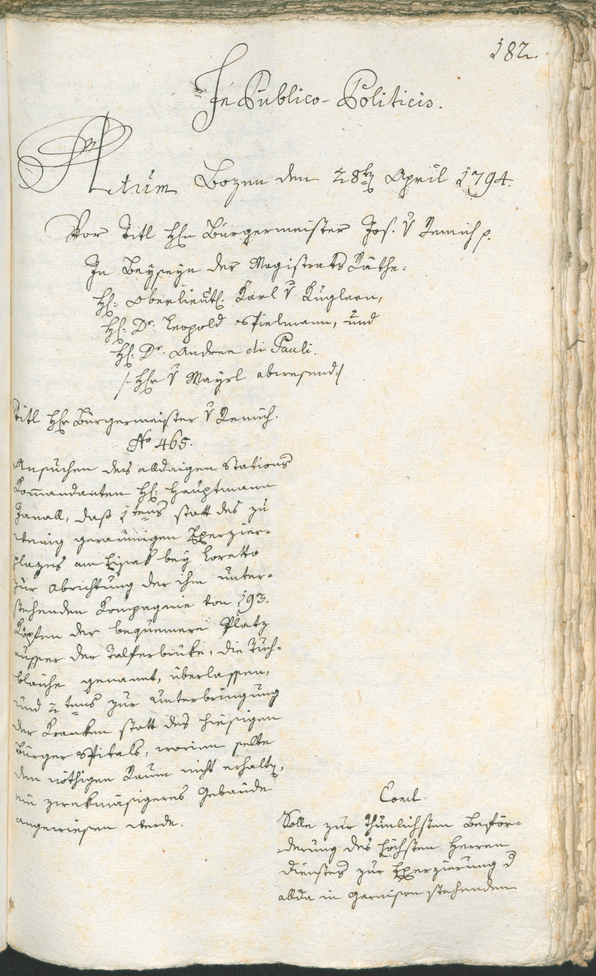 182.
In Publico-Politicis.
Actum Bozen den 28ten April 1794.
Vor Titl Hhn Bürgermeister Jos. v Remich p.
In Beyseyn der Magistrats Räthe.
Hh: Oberlieut. Karl v Kuglern,
Hh: Dr. Leopold Stielmann, und
Hh: Dr. Andree di Pauli.
/: Hhr v Mayrl abwesend :/
Titl Hhr Bürgermeister v Remich.
No 465.
Ansuchen des alldaigen Stations
Kommandanten Hh: Hauptmann
daß 1tens statt des zu
wenig geraumigen Exerzier-
plazes am Eisak bey Loretto
zur Abrichtung der ihm unter-
stehenden Kompagnie von 193.
Köpfen der bequemere Platz
ausser der Talferbrüke, die Tuch-
bleiche genannt, überlassen,
und 2tens zur Unterbringung
der Kranken statt des hiesigen
Bürger Spitals, worinn selbe
den nöthigen Raum nicht erhalten,
ein zwekmäsigeres Gebäude
angewiesen werde.
Concl.
Solle zur thunlichsten Beför-
derung des höchsten Herren
Dienstes zur Exerzierung d
allda in Garnison stehenden